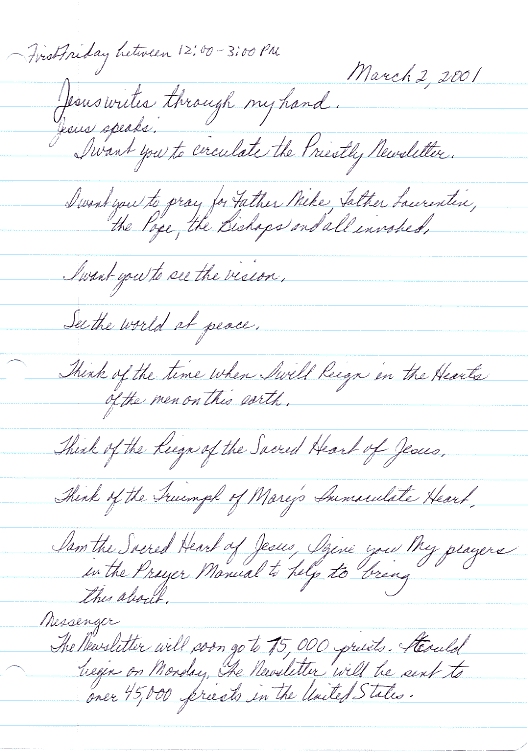 First Friday between 12:00 - 3:00 PM
March 2, 2001
Jesus writes through my hand.
Jesus speaks:
I want you to circulate the Priestly Newsletter.
I want you to pray for Father Mike, Father Laurentin,
the Pope, the Bishops and all involved.
I want you to see the vision.
See the world at peace.
Think of the time when I will Reign in the Hearts
of the men on this earth.
Think of the Reign of the Sacred Heart of Jesus.
Think of the Triumph of Mary's Immaculate Heart.
I am the Sacred Heart of Jesus, I give you My prayers
in the Prayer Manual to help to bring
this about.
Messenger
The Newsletter will soon go to 15,000 priests. It could
begin on Monday. The Newsletter will be sent to
over 45,000 priests in the United States.